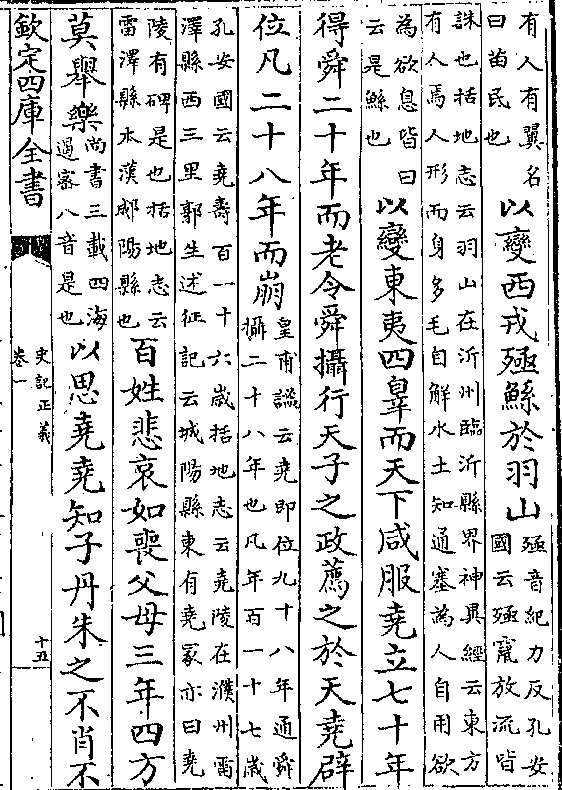 有人有翼名
曰苗民也
以變西戎殛鯀於羽山
殛音紀力反孔安
國云殛竄放流皆
誅也括地志云羽山在沂州臨沂縣界神異經云東方
有人焉人形而身多毛自解水土知通塞為人自用欲
為欲息皆曰
云是鯀也
以變東夷四辠而天下咸服堯立七十年
得舜二十年而老令舜攝行天子之政薦之於天堯辟
位凡二十八年而崩
皇甫謐云堯即位九十八年通舜
攝二十八年也凡年百一十七歲
孔安國云堯壽百一十六歲括地志云堯陵在濮州雷
澤縣西三里郭生述征記云城陽縣東有堯冢亦曰堯
陵有碑是也括地志云
雷澤縣本漢郕陽縣也
百姓悲哀如喪父母三年四方
莫舉樂
尚書三載四海
遏密八音是也
以思堯堯知子丹朱之不肖不
欽定四庫全書
史記正義
卷一
十五